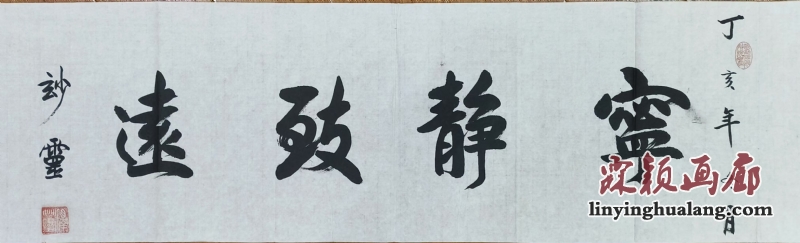 丁亥年 月
寧静致遠
玅靈
霖颖画廊
linyinghualang.com